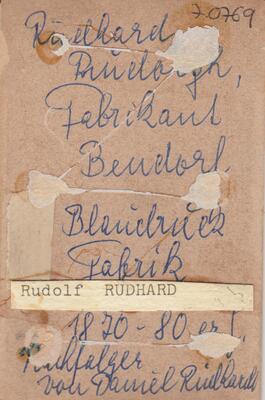 70769
Rüdhard
Rudolph,
Fabrikant
Bendorf.
Blaudruck
Fabrik
Rudolf RÜDHARD
1870-80er J.
Nachfolger
von Daniel Rüdhardt